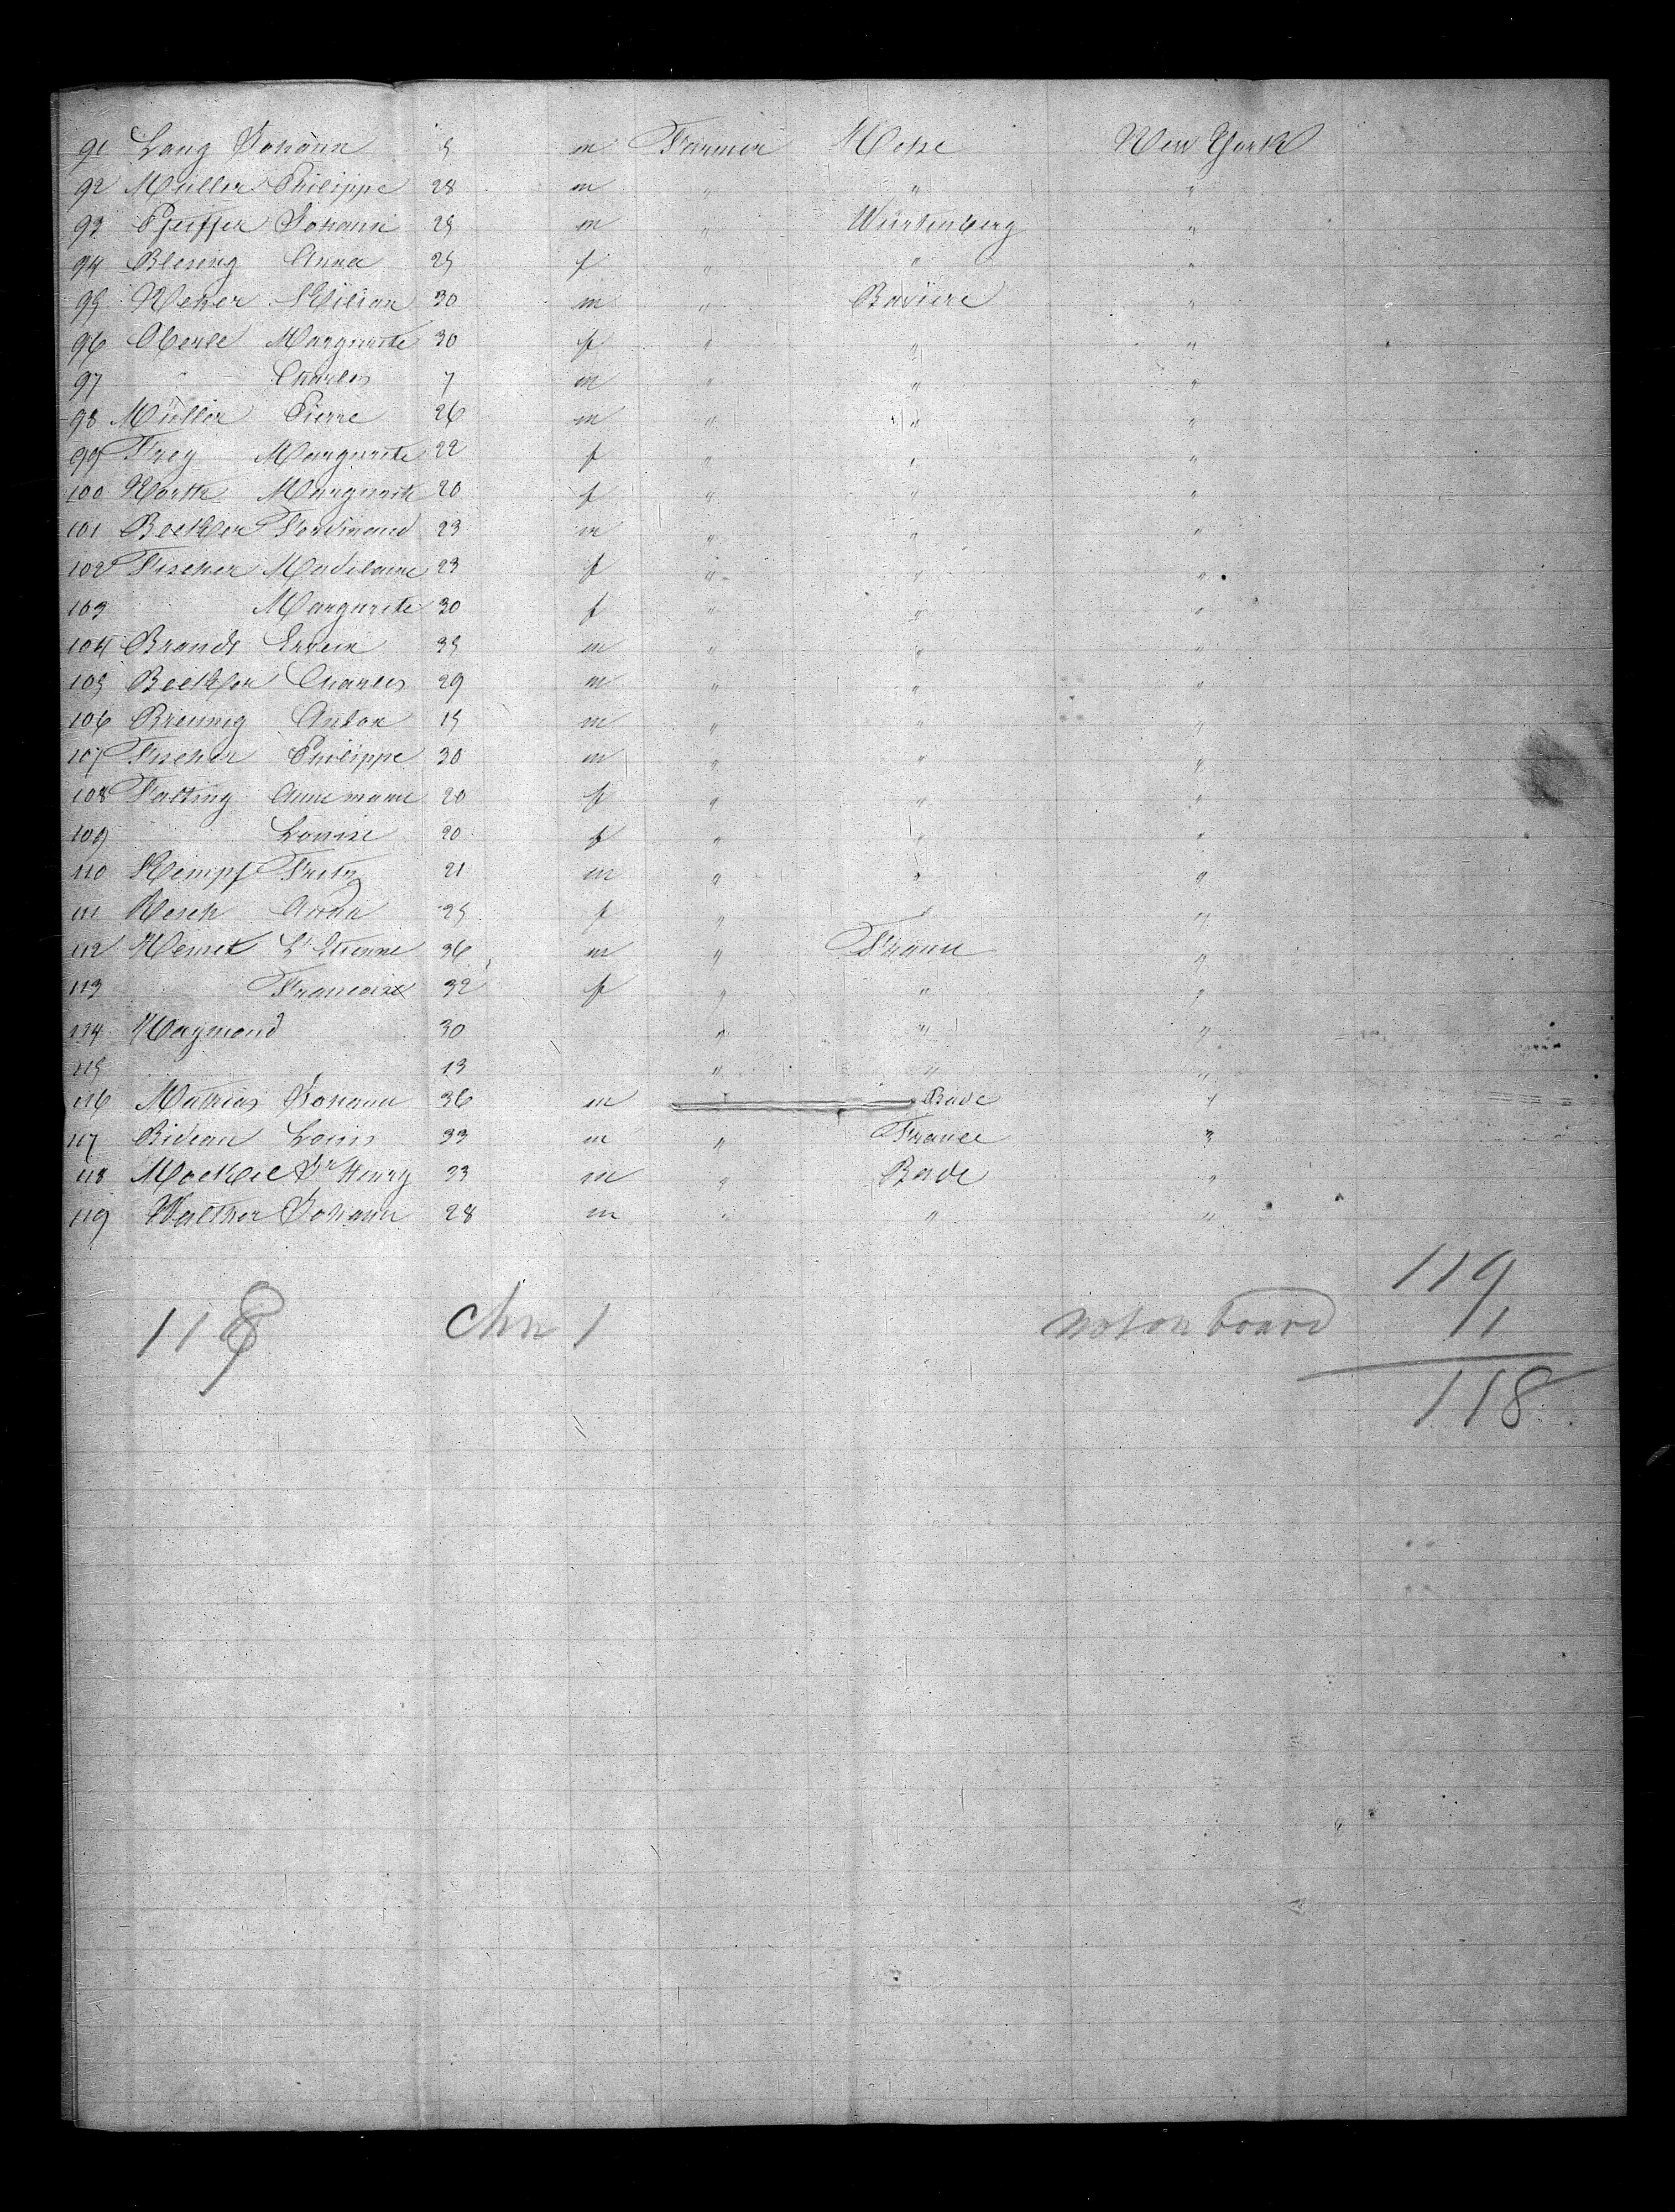 91 Lang Johann 5 m Farmer Hesse New York
92 Müller Philippe 28 m " " "
93 Pfeiffer Johann 25 m " Würtenberg "
94 Blesing Anna 25 f " " "
95 Kilian 30 m " Baviere "
96 Oberle Margurite 30 f " " "
97 " Charles 7 m " " "
98 Müller Pierre 26 m " " "
99 Frey Margurite 22 f " " "
100 Margurite 20 f " " "
101 Ferdinand 23 m " " "
102 Fischer Madelaine 23 f " " "
103 Margurite 30 f " " "
104 Brandt Erwin 35 m " " "
105 Charles 29 m " " "
106 Breunig Anton 15 m " " "
107 Fischer Philippe 30 m " " "
108 Falting Annemarie 20 f " " "
109 Louise 20 f " " "
110 Kempf Fritz 21 m " " "
111 Resch Anna 25 f " " "
112 Etienne 36 m " France "
113 Francoise 32 f " " "
114 Raymond 30 " " "
115 13 " " "
116 Mathias Johann 36 m " Bade "
117 Bideau Louis 33 m " France "
118 Henry 33 m " Bade "
119 Walther Johann 28 m " " "
119
118 chn 1 not on board 1
118